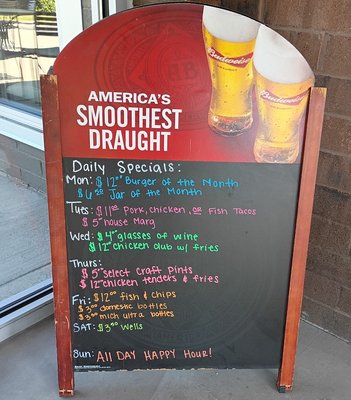 Budweiser
Budweiser
AMERICA'S
SMOOTHEST
DRAUGHT
Daily Specials:
Mon: $12.00 Burger of the Month
$6.00 Jar of the Month
Tues: $11.00 Pork, chicken, OR Fish Tacos
$5 house Marg
Wed: $4 glasses of wine
$12 chicken club w/ fries
Thurs:
$5 select craft pints
$12 chicken tenders & fries
Fri: $12.00 fish & chips
$3.00 domestic bottles
$3.00 mich ultra bottles
SAT: $3.00 wells
Sun: ALL DAY HAPPY HOUR!